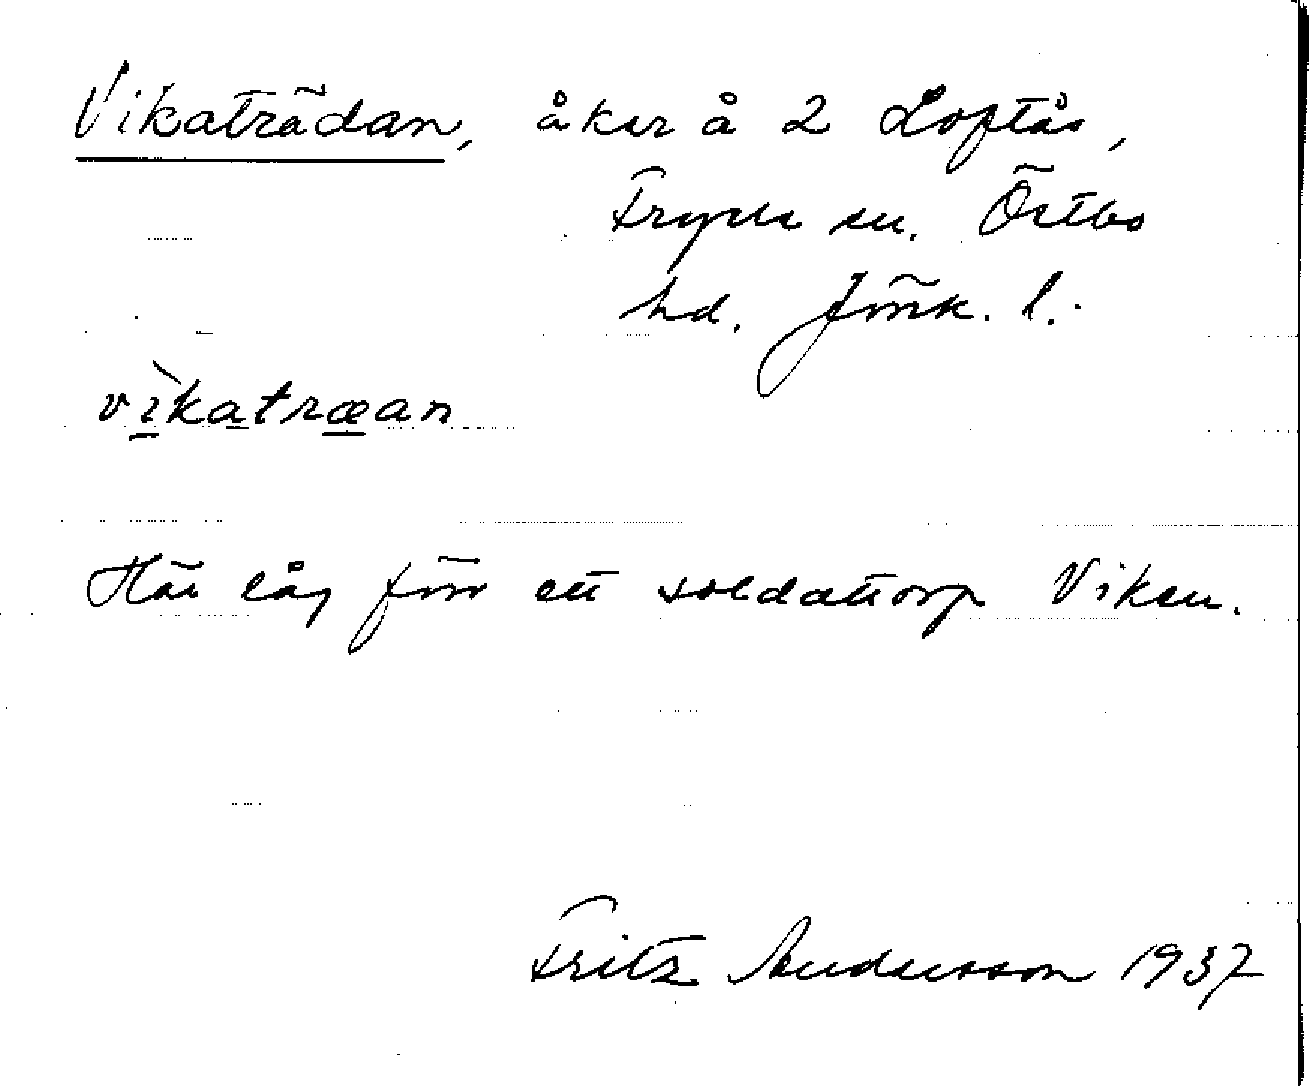 Vikaträdan, åker å 2 Loftås,
Fryele sn. Östbo
hd. Jönk. l.
vìkatræan
Här låg förr ett soldattorp Viken.
Fritz Andersson 1937